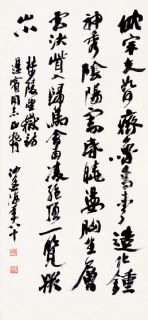 岱宗夫如何齊魯青未了造化鍾
神秀陰陽割昏曉盪胸生層
雲決眥入歸鳥會當凌絕頂一覽眾
山小
杜陵望嶽詩
同志正腕
沙孟海年八十